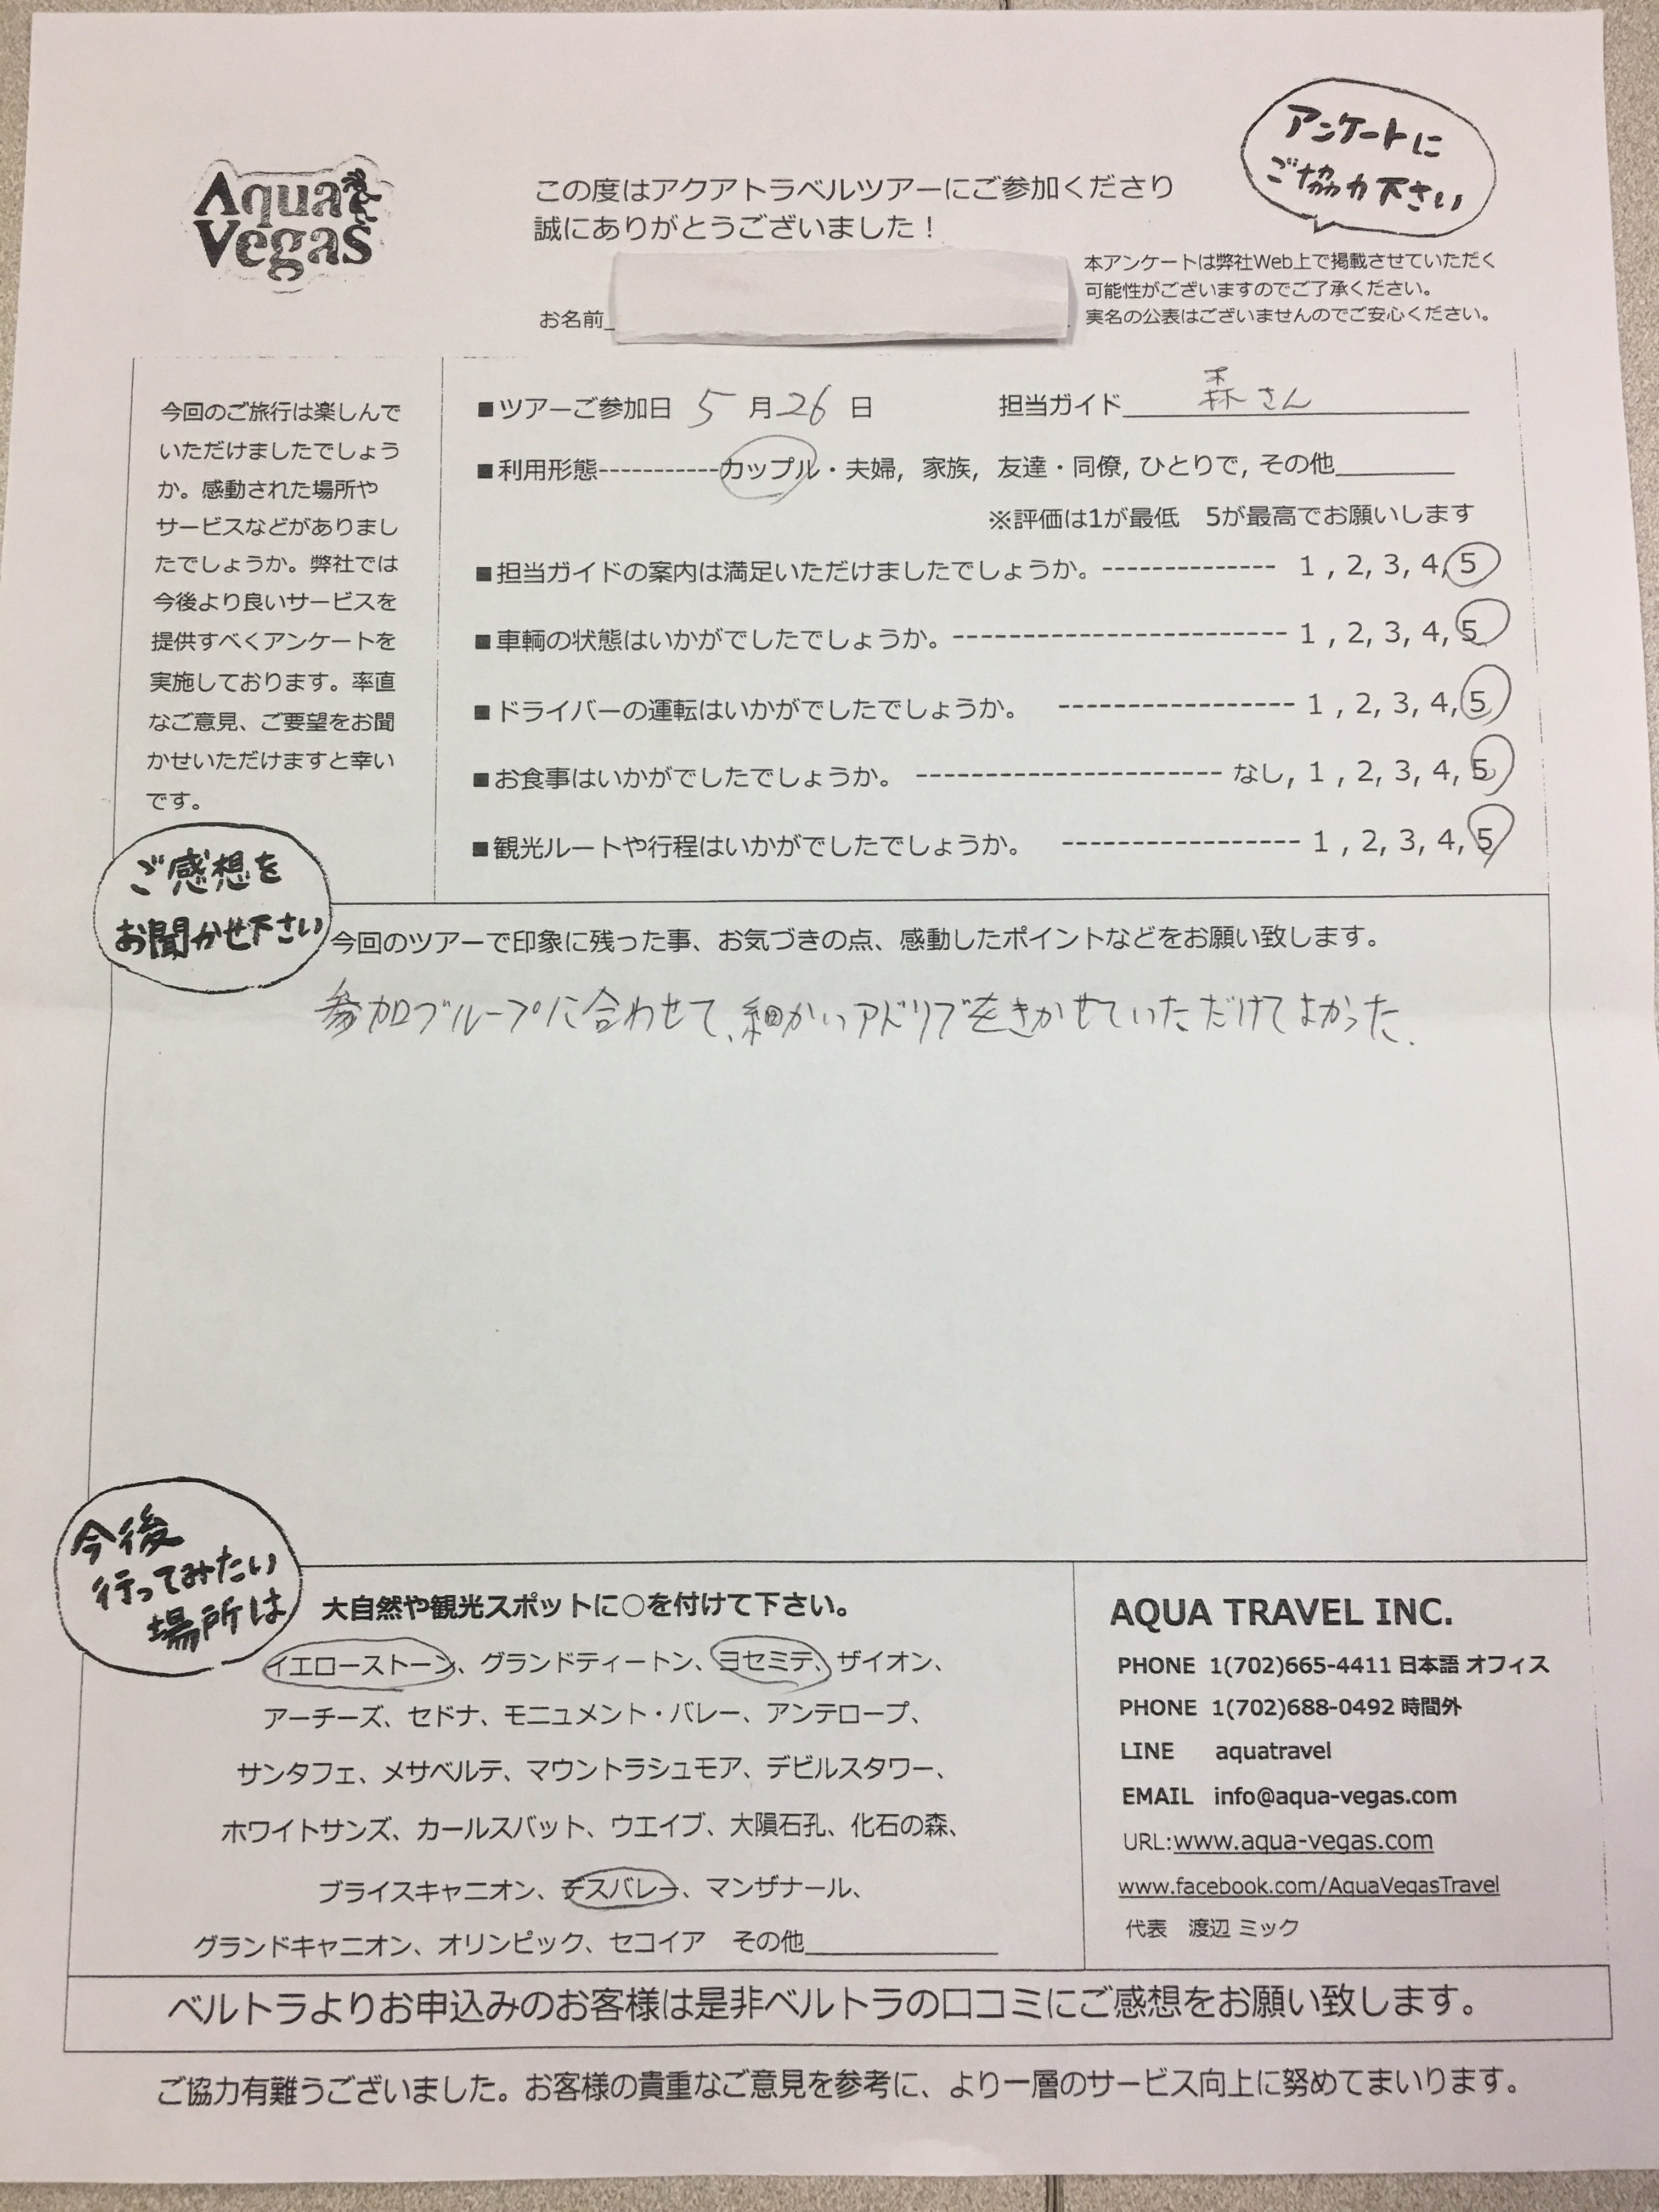 アンケートに
ご協力下さい
Aqua
Vegas
この度はアクアトラベルツアーにご参加くださり
誠にありがとうございました！
お名前
本アンケートは弊社Web上で掲載させていただく
可能性がございますのでご了承ください。
実名の公表はございませんのでご安心ください。
今回のご旅行は楽しんで
いただけましたでしょう
か。感動された場所や
サービスなどがありまし
たでしょうか。弊社では
今後より良いサービスを
提供すべくアンケートを
実施しております。率直
なご意見、ご要望をお聞
かせいただけますと幸い
です。
■ツアーご参加日 5 月 26 日 担当ガイド 森さん
■利用形態-----------カップル・夫婦, 家族, 友達・同僚, ひとりで, その他
※評価は1が最低 5が最高でお願いします
■担当ガイドの案内は満足いただけましたでしょうか。-------------- 1 , 2, 3, 4, 5
■車輌の状態はいかがでしたでしょうか。----------------------- 1 , 2, 3, 4, 5
■ドライバーの運転はいかがでしたでしょうか。 ----------------- 1 , 2, 3, 4, 5
■お食事はいかがでしたでしょうか。 --------------------- なし, 1 , 2, 3, 4, 5
■観光ルートや行程はいかがでしたでしょうか。 ----------------- 1 , 2, 3, 4, 5
ご感想を
お聞かせ下さい
今回のツアーで印象に残った事、お気づきの点、感動したポイントなどをお願い致します。
参加グループに合わせて、細かいアドリブをきかせていただけてよかった.
今後
行ってみたい
場所は
大自然や観光スポットに○を付けて下さい。
イエローストーン、グランドティートン、ヨセミテ、ザイオン、
アーチーズ、セドナ、モニュメント・バレー、アンテロープ、
サンタフェ、メサベルテ、マウントラシュモア、デビルスタワー、
ホワイトサンズ、カールスバット、ウエイブ、大隕石孔、化石の森、
ブライスキャニオン、デスバレー、マンザナール、
グランドキャニオン、オリンピック、セコイア その他
AQUA TRAVEL INC.
PHONE 1(702)665-4411 日本語 オフィス
PHONE 1(702)688-0492 時間外
LINE aquatravel
EMAIL info@aqua-vegas.com
URL:www.aqua-vegas.com
www.facebook.com/AquaVegasTravel
代表 渡辺 ミック
ベルトラよりお申込みのお客様は是非ベルトラの口コミにご感想をお願い致します。
ご協力有難うございました。お客様の貴重なご意見を参考に、より一層のサービス向上に努めてまいります。